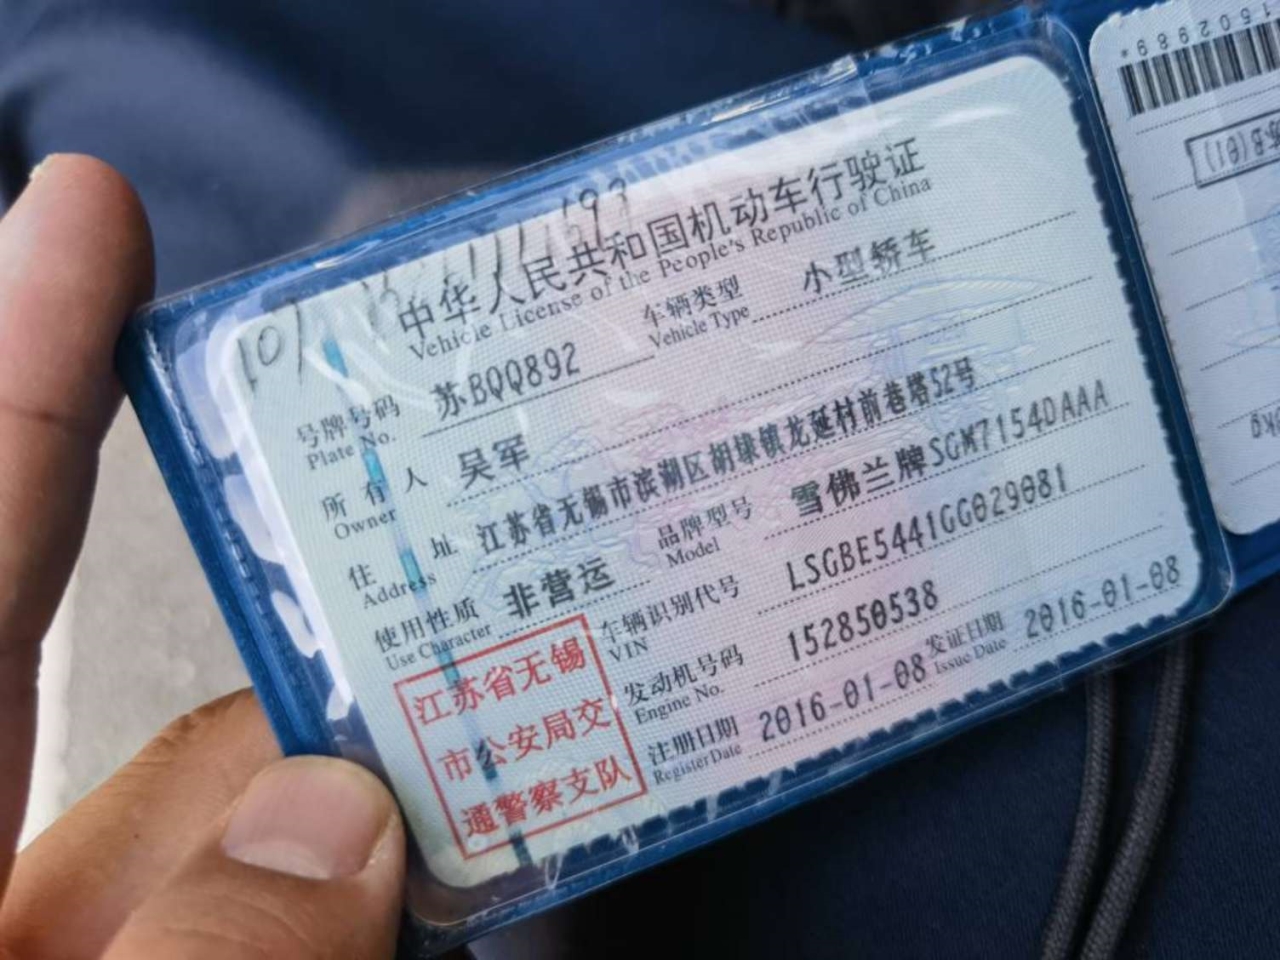 中华人民共和国机动车行驶证
Vehicle License of the People's Republic of China
号牌号码 苏BQQ892 车辆类型 小型轿车
Plate No. Vehicle Type
所有人 吴军
Owner
住址 江苏省无锡市滨湖区胡埭镇龙延村前巷塔52号
Address
使用性质 非营运 品牌型号 雪佛兰牌SGM7154DAAA
Use Character Model
车辆识别代号 LSGBE5441GG029081
VIN
发动机号码 152850538
Engine No.
注册日期 2016-01-08 发证日期 2016-01-08
Register Date Issue Date
江苏省无锡
市公安局交
通警察支队